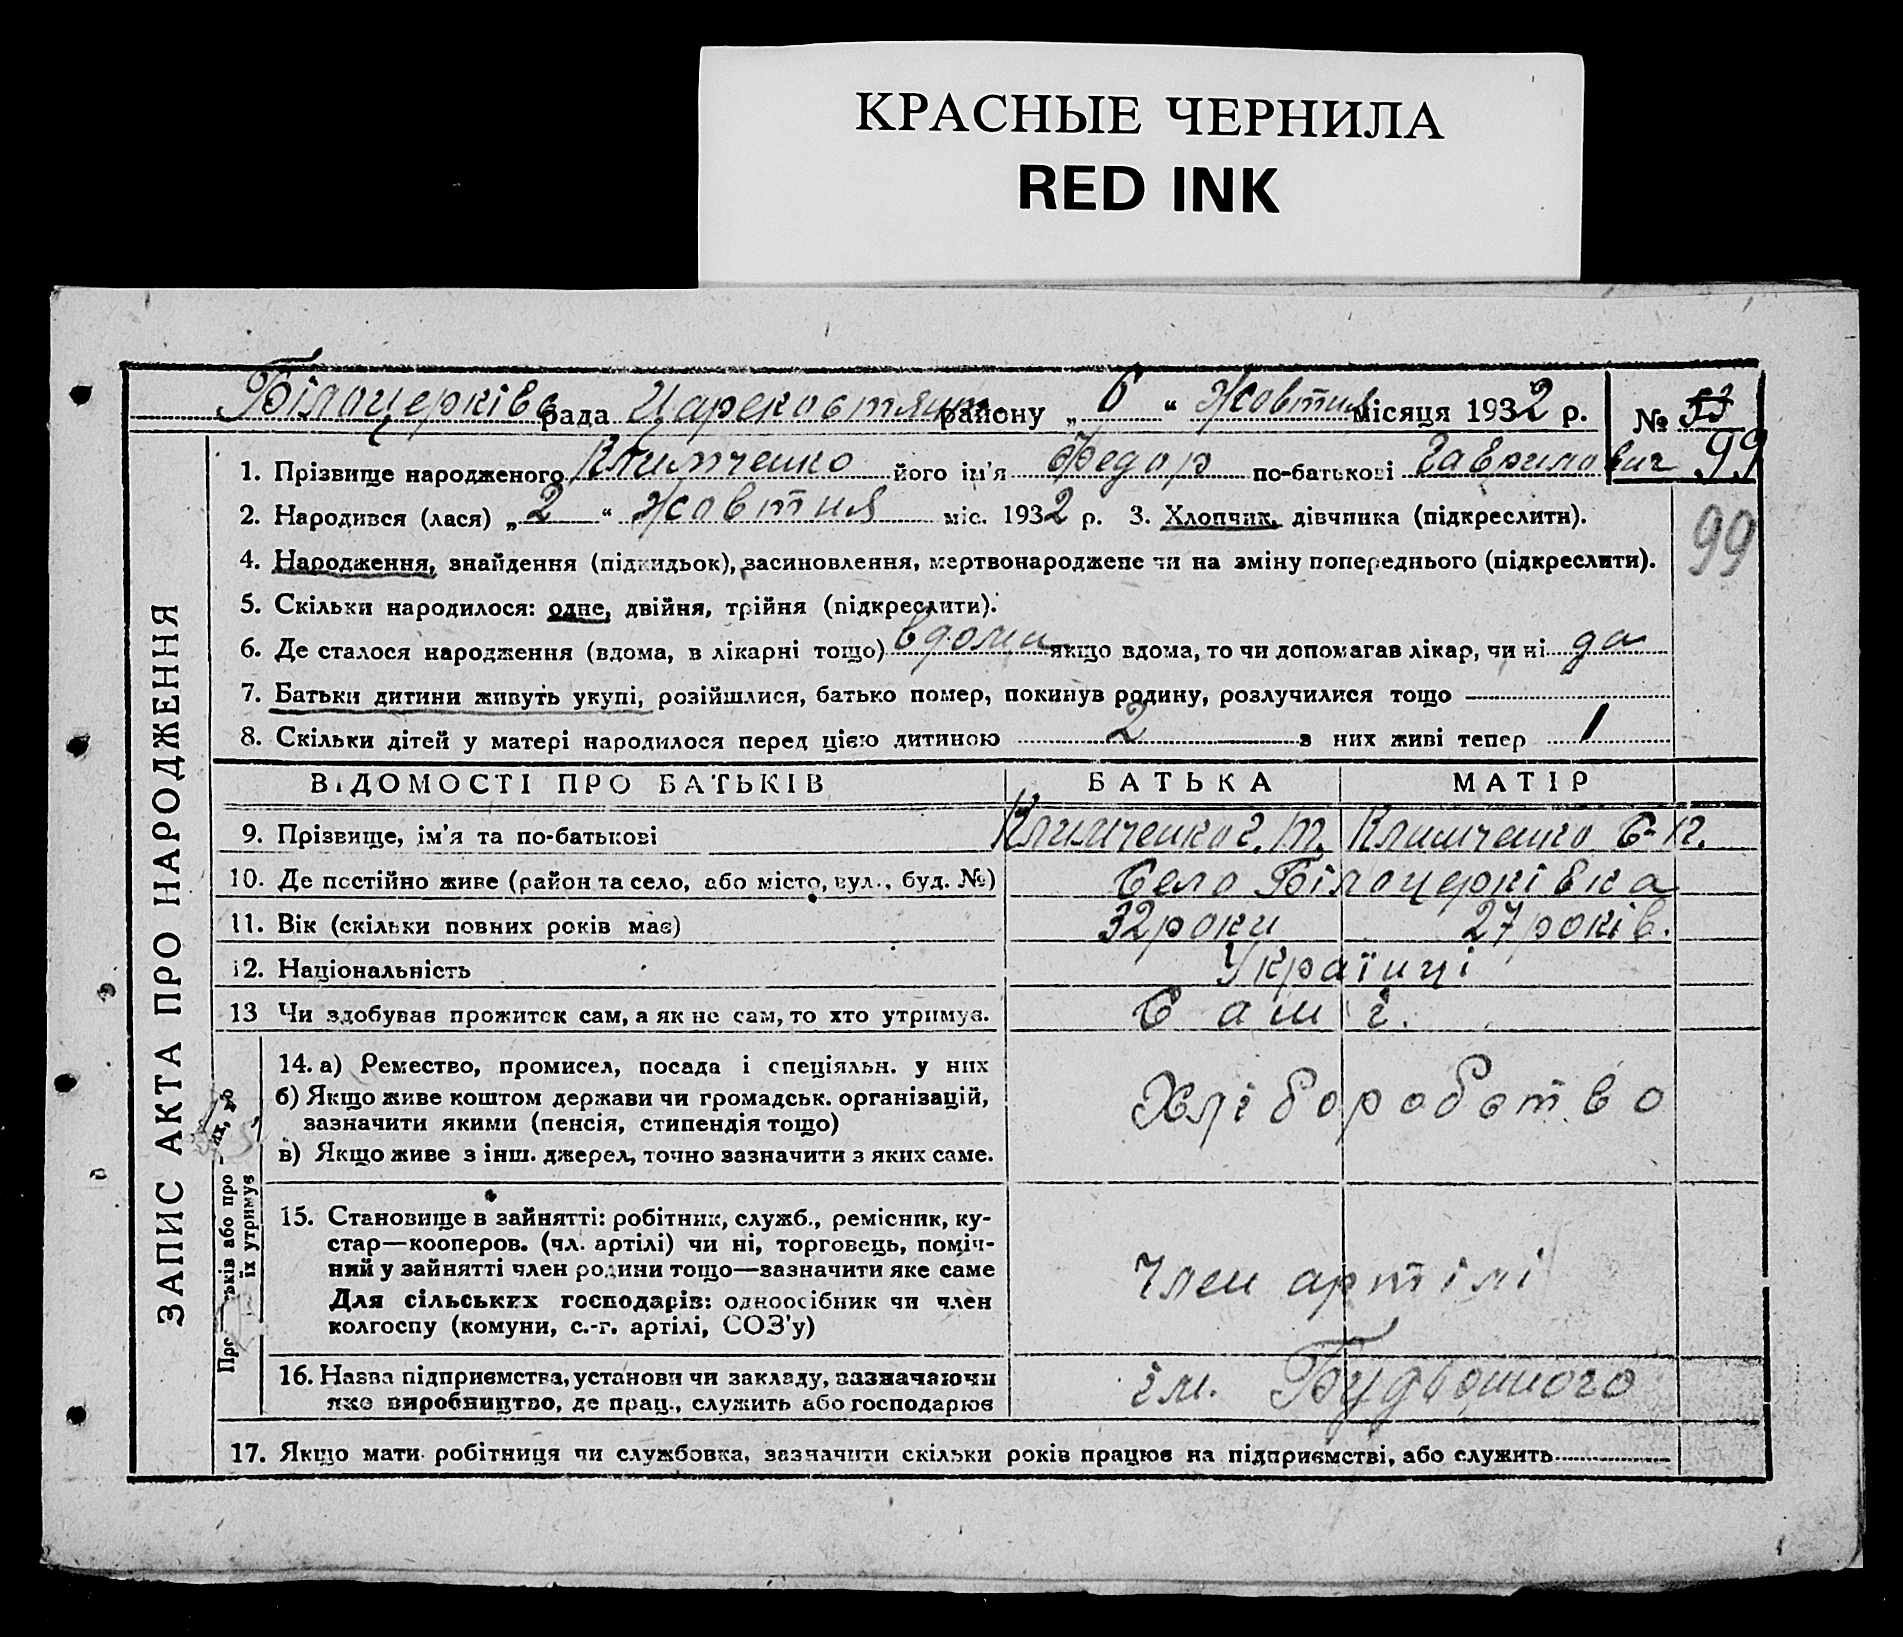 КРАСНЫЕ ЧЕРНИЛА
RED INK
Білоцерківс рада району „ 6 “ Жовтня місяця 1932 р. № 53
99
1. Прізвище народженого Климченко його ім'я Федор по-батькові Гаврилович
2. Народився (лася) „ 2 “ Жовтня міс. 1932 р. 3. Хлопчик, дівчинка (підкреслити).
99
4. Народження, знайдення (підкидьок), засиновлення, мертвонароджене чи на зміну попереднього (підкреслити).
5. Скільки народилося: одне, двійня, трійня (підкреслити).
6. Де сталося народження (вдома, в лікарні тощо) вдома якщо вдома, то чи допомагав лікар, чи ні да
7. Батьки дитини живуть укупі, розійшлися, батько помер, покинув родину, розлучилися тощо
8. Скільки дітей у матері народилося перед цією дитиною 2 з них живі тепер 1
ВІДОМОСТІ ПРО БАТЬКІВ БАТЬКА МАТІР
9. Прізвище, ім'я та по-батькові Климченко Г. Т. Климченко Є. П.
10. Де постійно живе (район та село, або місто, вул., буд. №) Село Білоцерківка
11. Вік (скільки повних років має) 32 роки 27 років.
12. Національність Українці
13 Чи здобував прожиток сам, а як не сам, то хто утримув. Самі.
14. а) Ремество, промисел, посада і спеціяльн. у них Хліборобство
б) Якщо живе коштом держави чи громадськ. організацій,
зазначити якими (пенсія, стипендія тощо)
в) Якщо живе з інш. джерел, точно зазначити з яких саме.
15. Становище в зайнятті: робітник, служб., ремісник, ку-
стар—кооперов. (чл. артілі) чи ні, торговець, поміч-
ний у зайнятті член родини тощо—зазначити яке саме
Для сільських господарів: одноосібник чи член
колгоспу (комуни, с.-г. артілі, СОЗ'у)
Член артілі
16. Назва підприємства, установи чи закладу, зазначаючи
яке виробництво, де прац., служить або господарює
ім. Будьонного
17. Якщо мати робітниця чи службовка, зазначити скільки років працює на підприємстві, або служить
ЗАПИС АКТА ПРО НАРОДЖЕННЯ
їх утримує